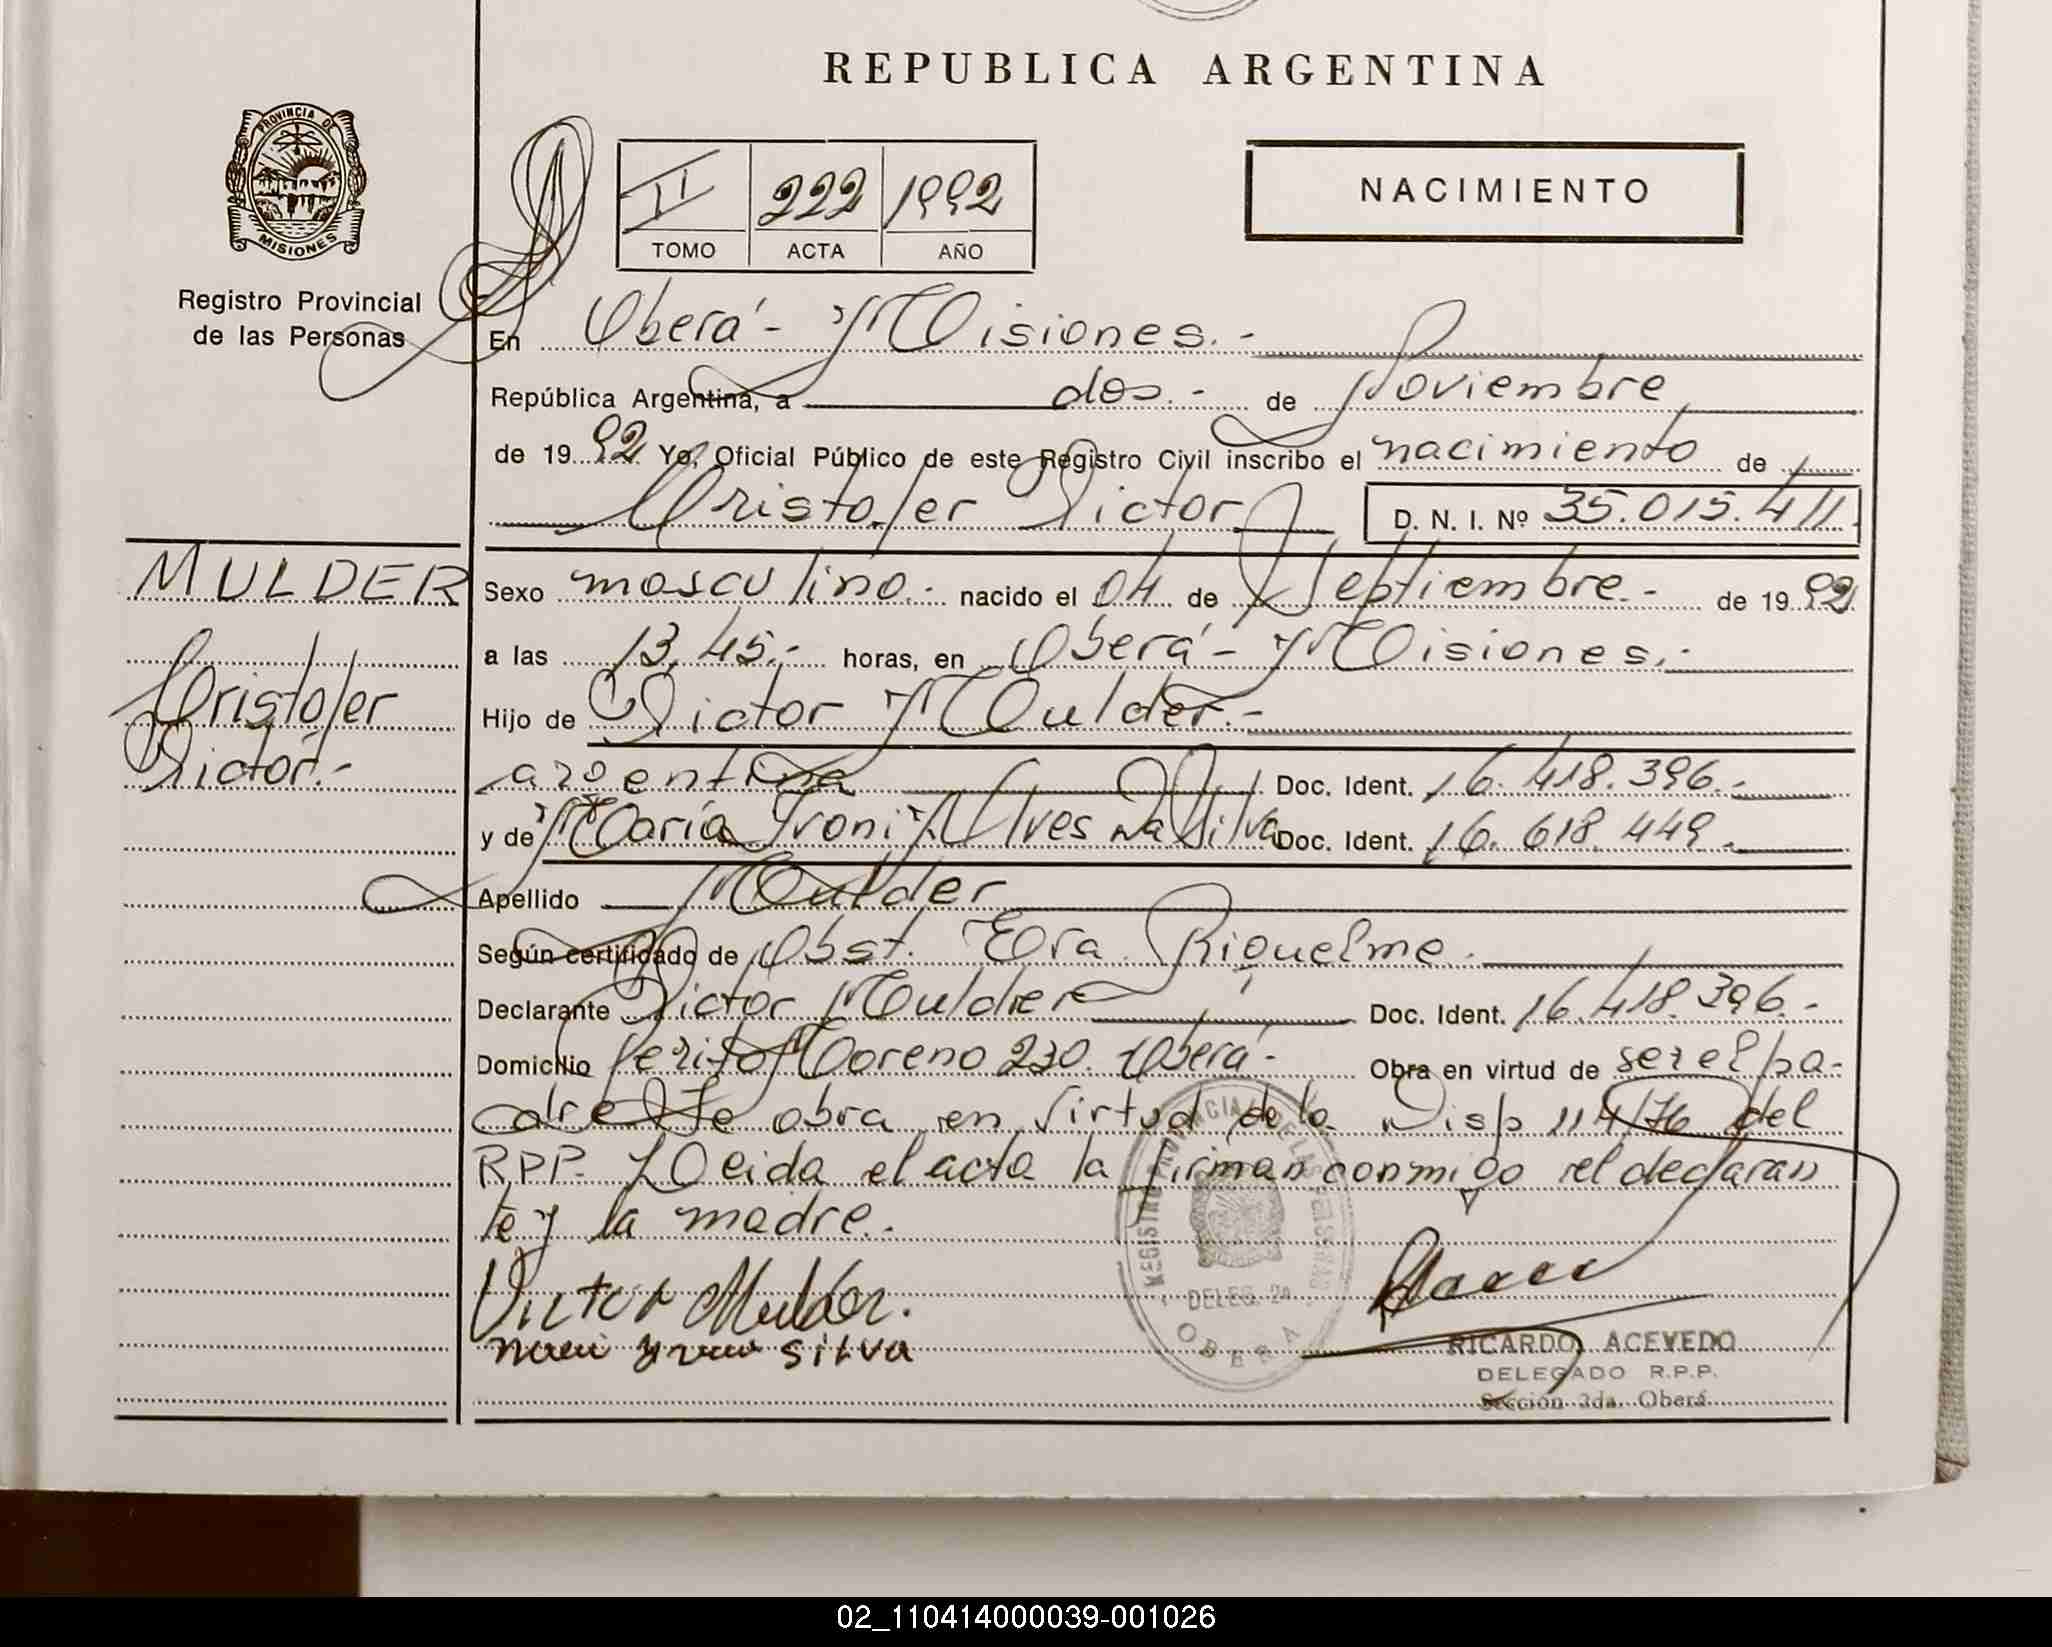 REPUBLICA ARGENTINA
PROVINCIA DE
MISIONES
Registro Provincial
de las Personas
II 222 1992
TOMO ACTA AÑO
NACIMIENTO
En Oberá - Misiones.-
República Argentina, a dos.- de Noviembre
de 1992 Yo, Oficial Público de este Registro Civil inscribo el nacimiento de
Cristofer Victor D. N. I. Nº 35.015.411.
MULDER
Cristofer
Victor.-
Sexo masculino.- nacido el 04 de Septiembre.- de 1992
a las 13,45.- horas, en Oberá - Misiones.-
Hijo de Victor Mulder.-
argentina Doc. Ident. 16.418.396.-
y de María Ivoni Alves Da Silva Doc. Ident. 16.618.449.-
Apellido Mulder
Según certificado de Obst. Eva Riquelme.
Declarante Victor Mulder Doc. Ident. 16.418.396.-
Domicilio Perito Moreno 230. Oberá.- Obra en virtud de ser el pa-
dre Se obra en virtud de la Disp 114/76 del
RPP. Leida el acta la firman conmigo el declaran
te y la madre.
Victor Mulder.
SILVA
DELEG. 2a
OBERA
RICARDO ACEVEDO
DELEGADO R.P.P.
Sección 2da. Oberá
02_110414000039-001026